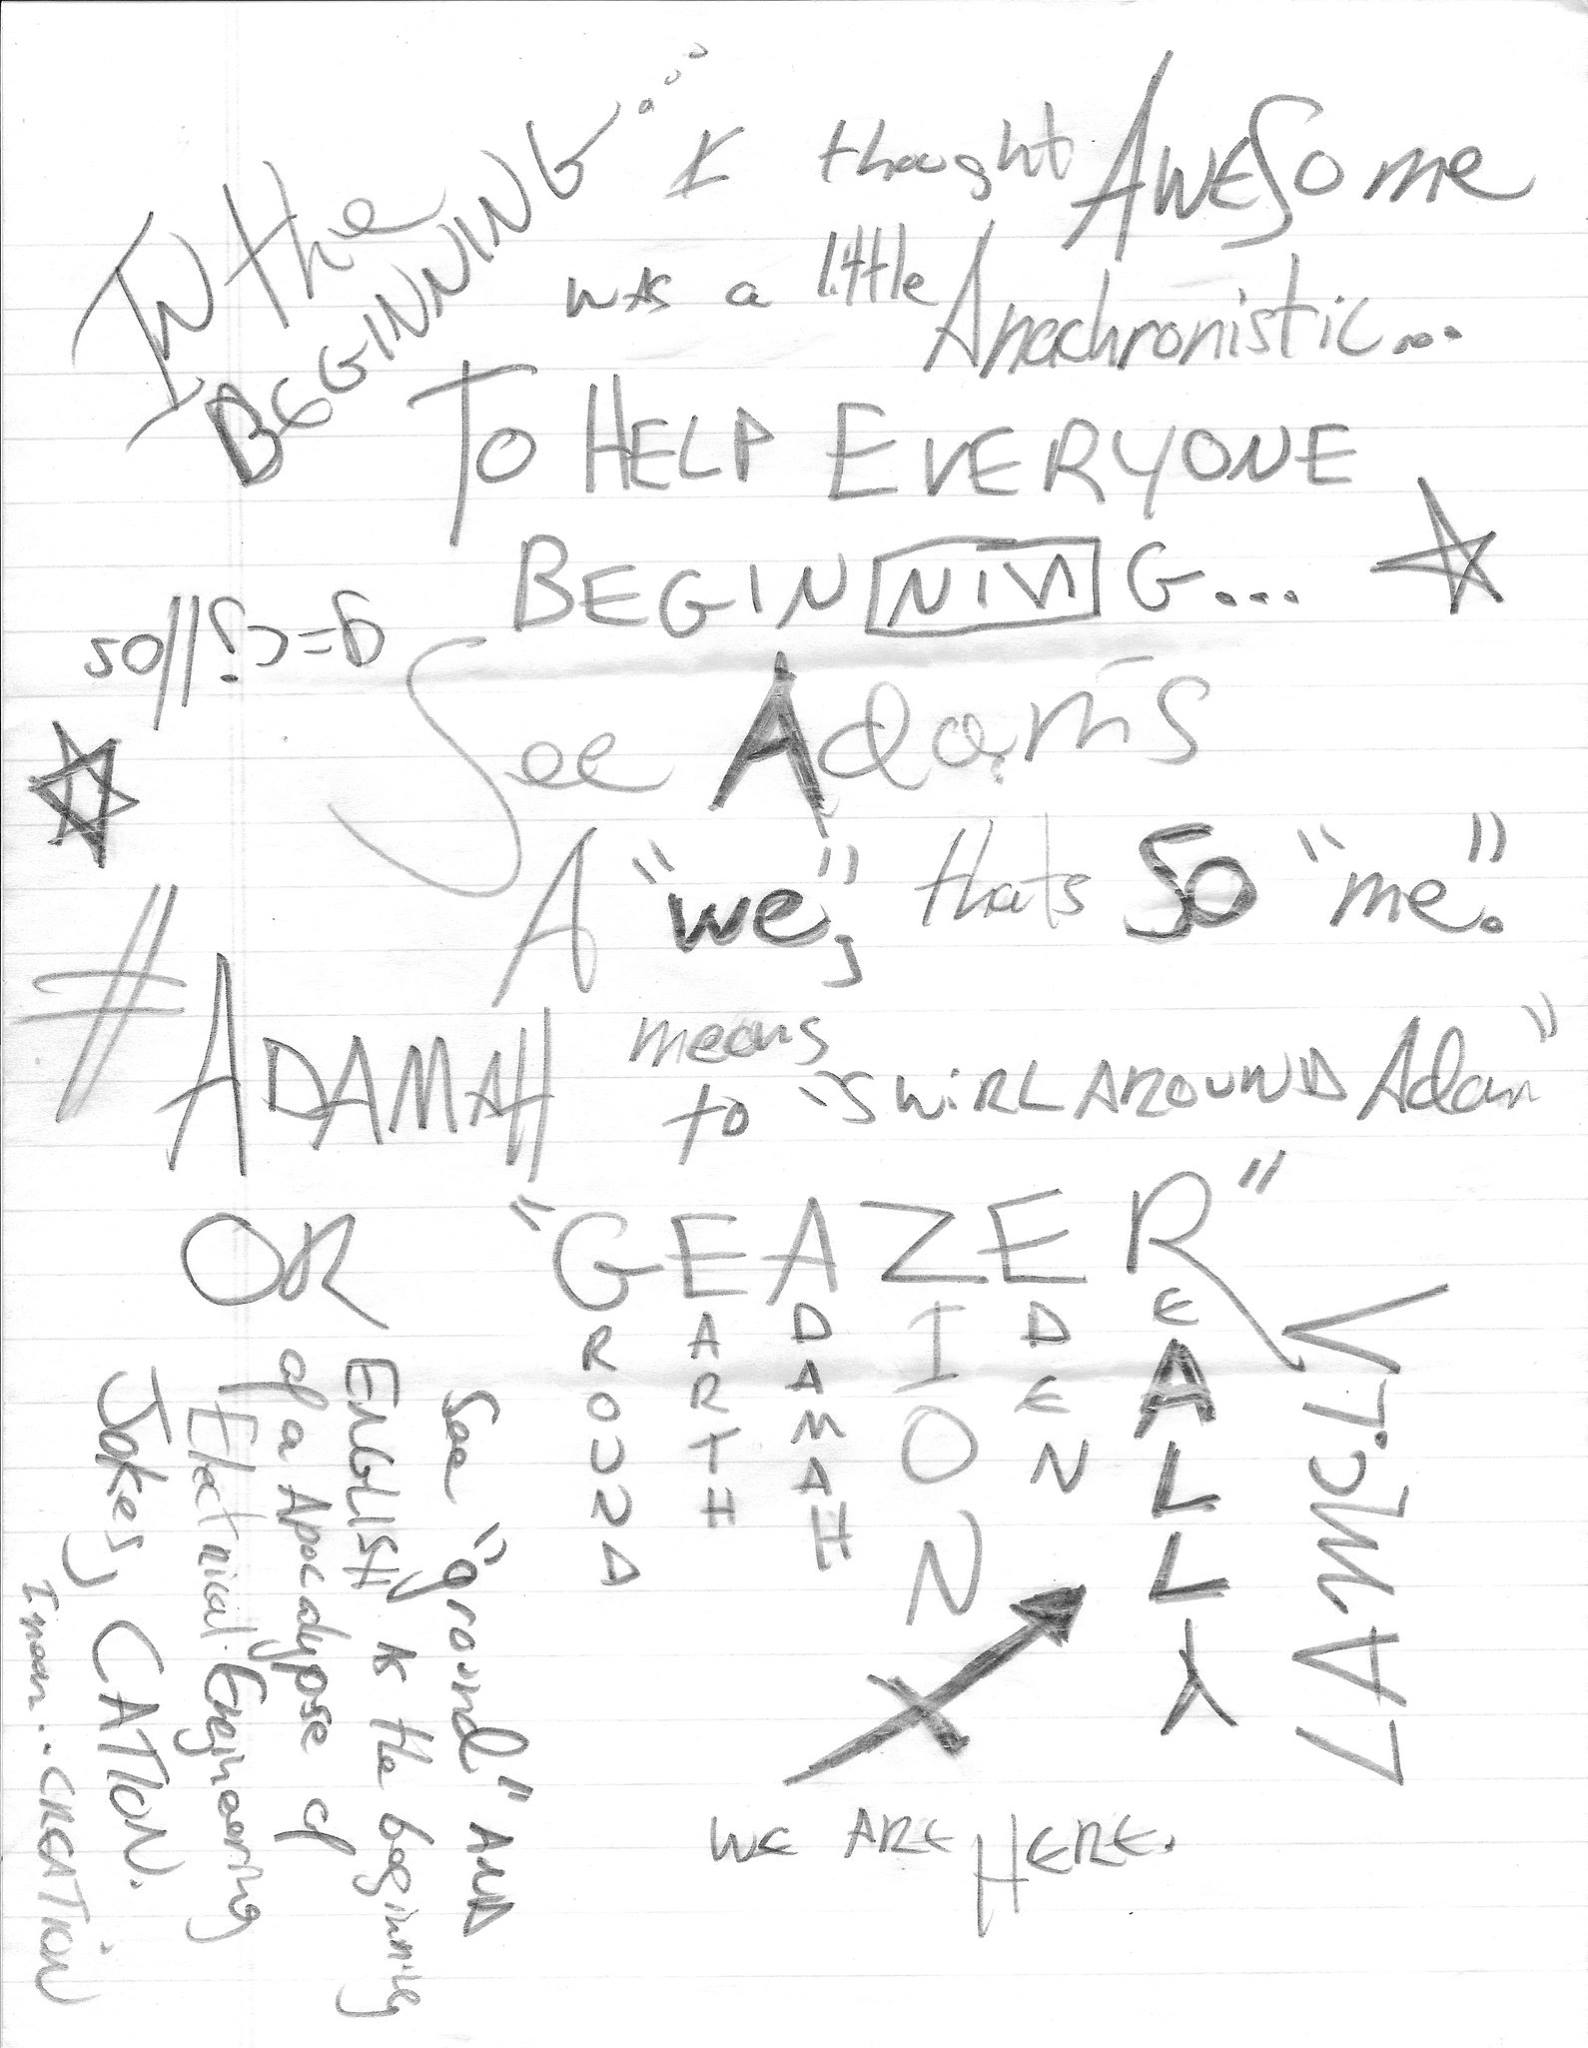 In the
BEGINNING...
I thought AWESome
was a little Anachronistic...
TO HELP EVERYONE
BEGIN NIN G...
See Adam's
A "we", thats SO "me".
#ADAMAH means
to "SWIRL AROUND Adam"
OR "GEAZER"
GROUND
EARTH
ADAMAH
ZION
EDEN
REALLY
WE ARE HERE.
See "ground" AND
ENGLISH is the beginning
of a Apocalypse of
Electrical Engineering
Jokes, CATION.
I mean... CREATION